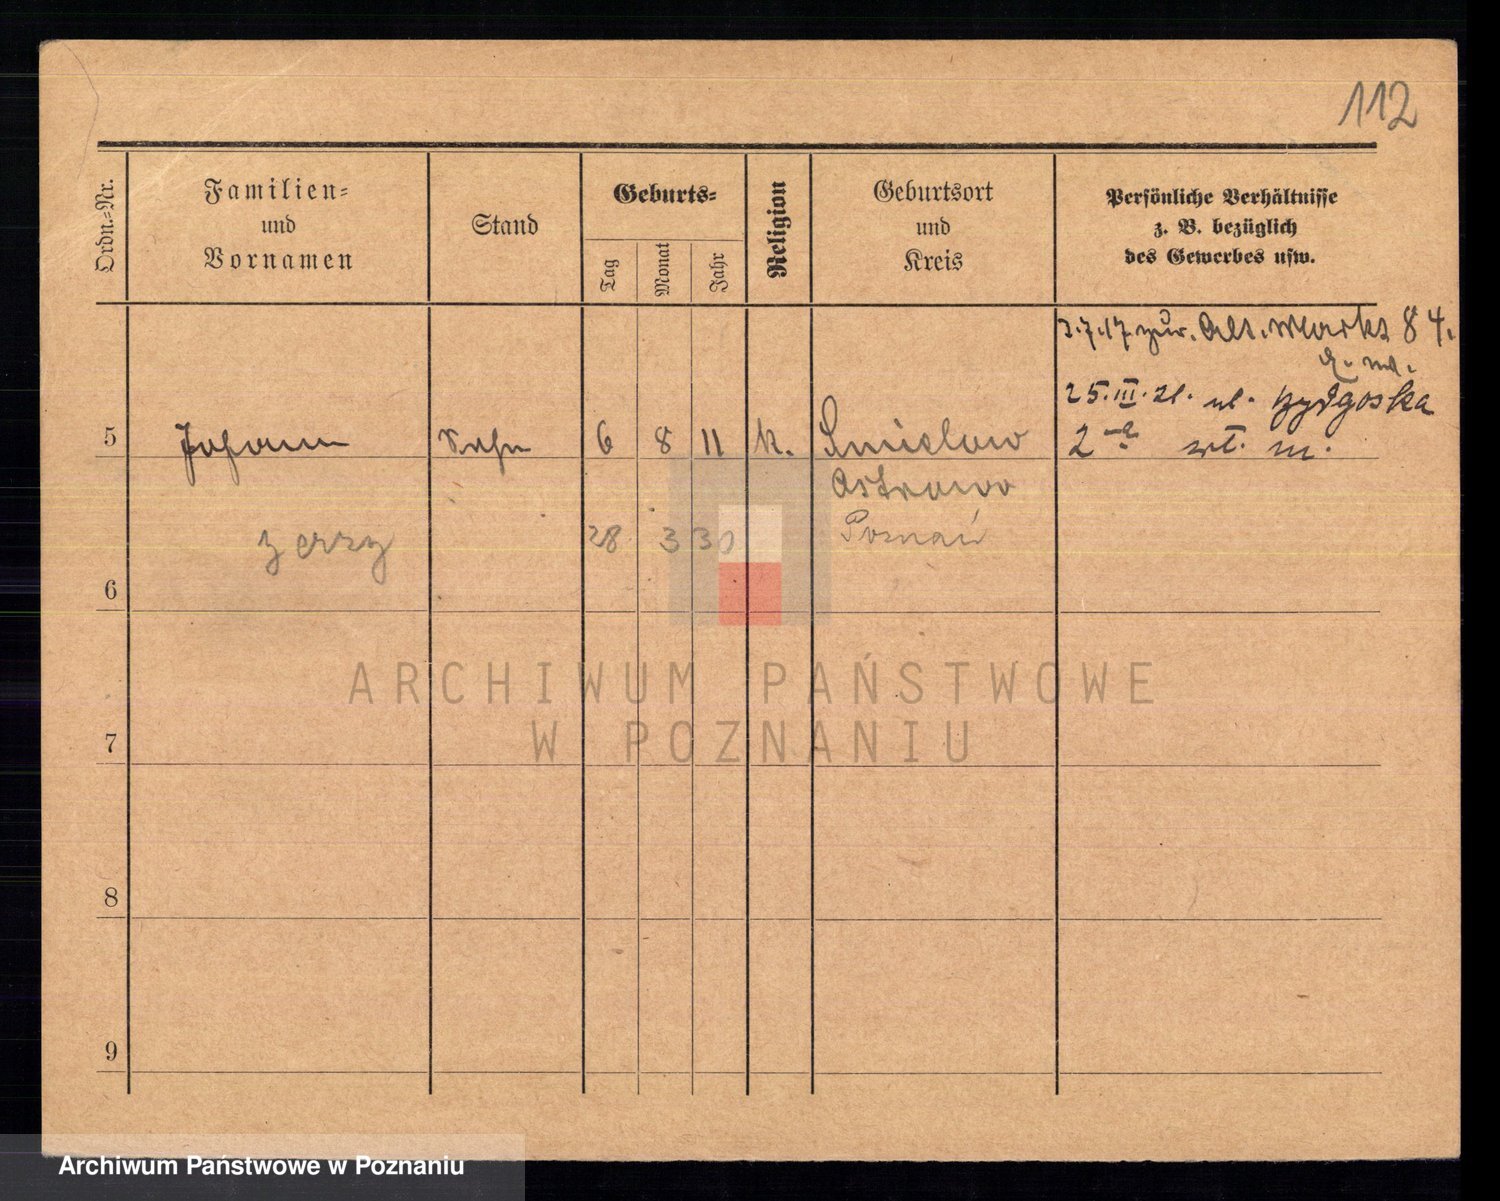 112
Ordn.=Nr.
Familien=
und
Vornamen
Stand
Geburts=
Tag
Monat
Jahr
Religion
Geburtsort
und
Kreis
Persönliche Verhältnisse
z. B. bezüglich
des Gewerbes usw.
3.7.17 zur. Alt. Markt 84.
25.III.21. ul. Bydgoska
2
5 Johann Sohn 6 8 11 k. Smielow
Ostrowo
Jerzy 28 3 30 Poznań
6
7
8
9
ARCHIWUM PAŃSTWOWE
W POZNANIU
Archiwum Państwowe w Poznaniu